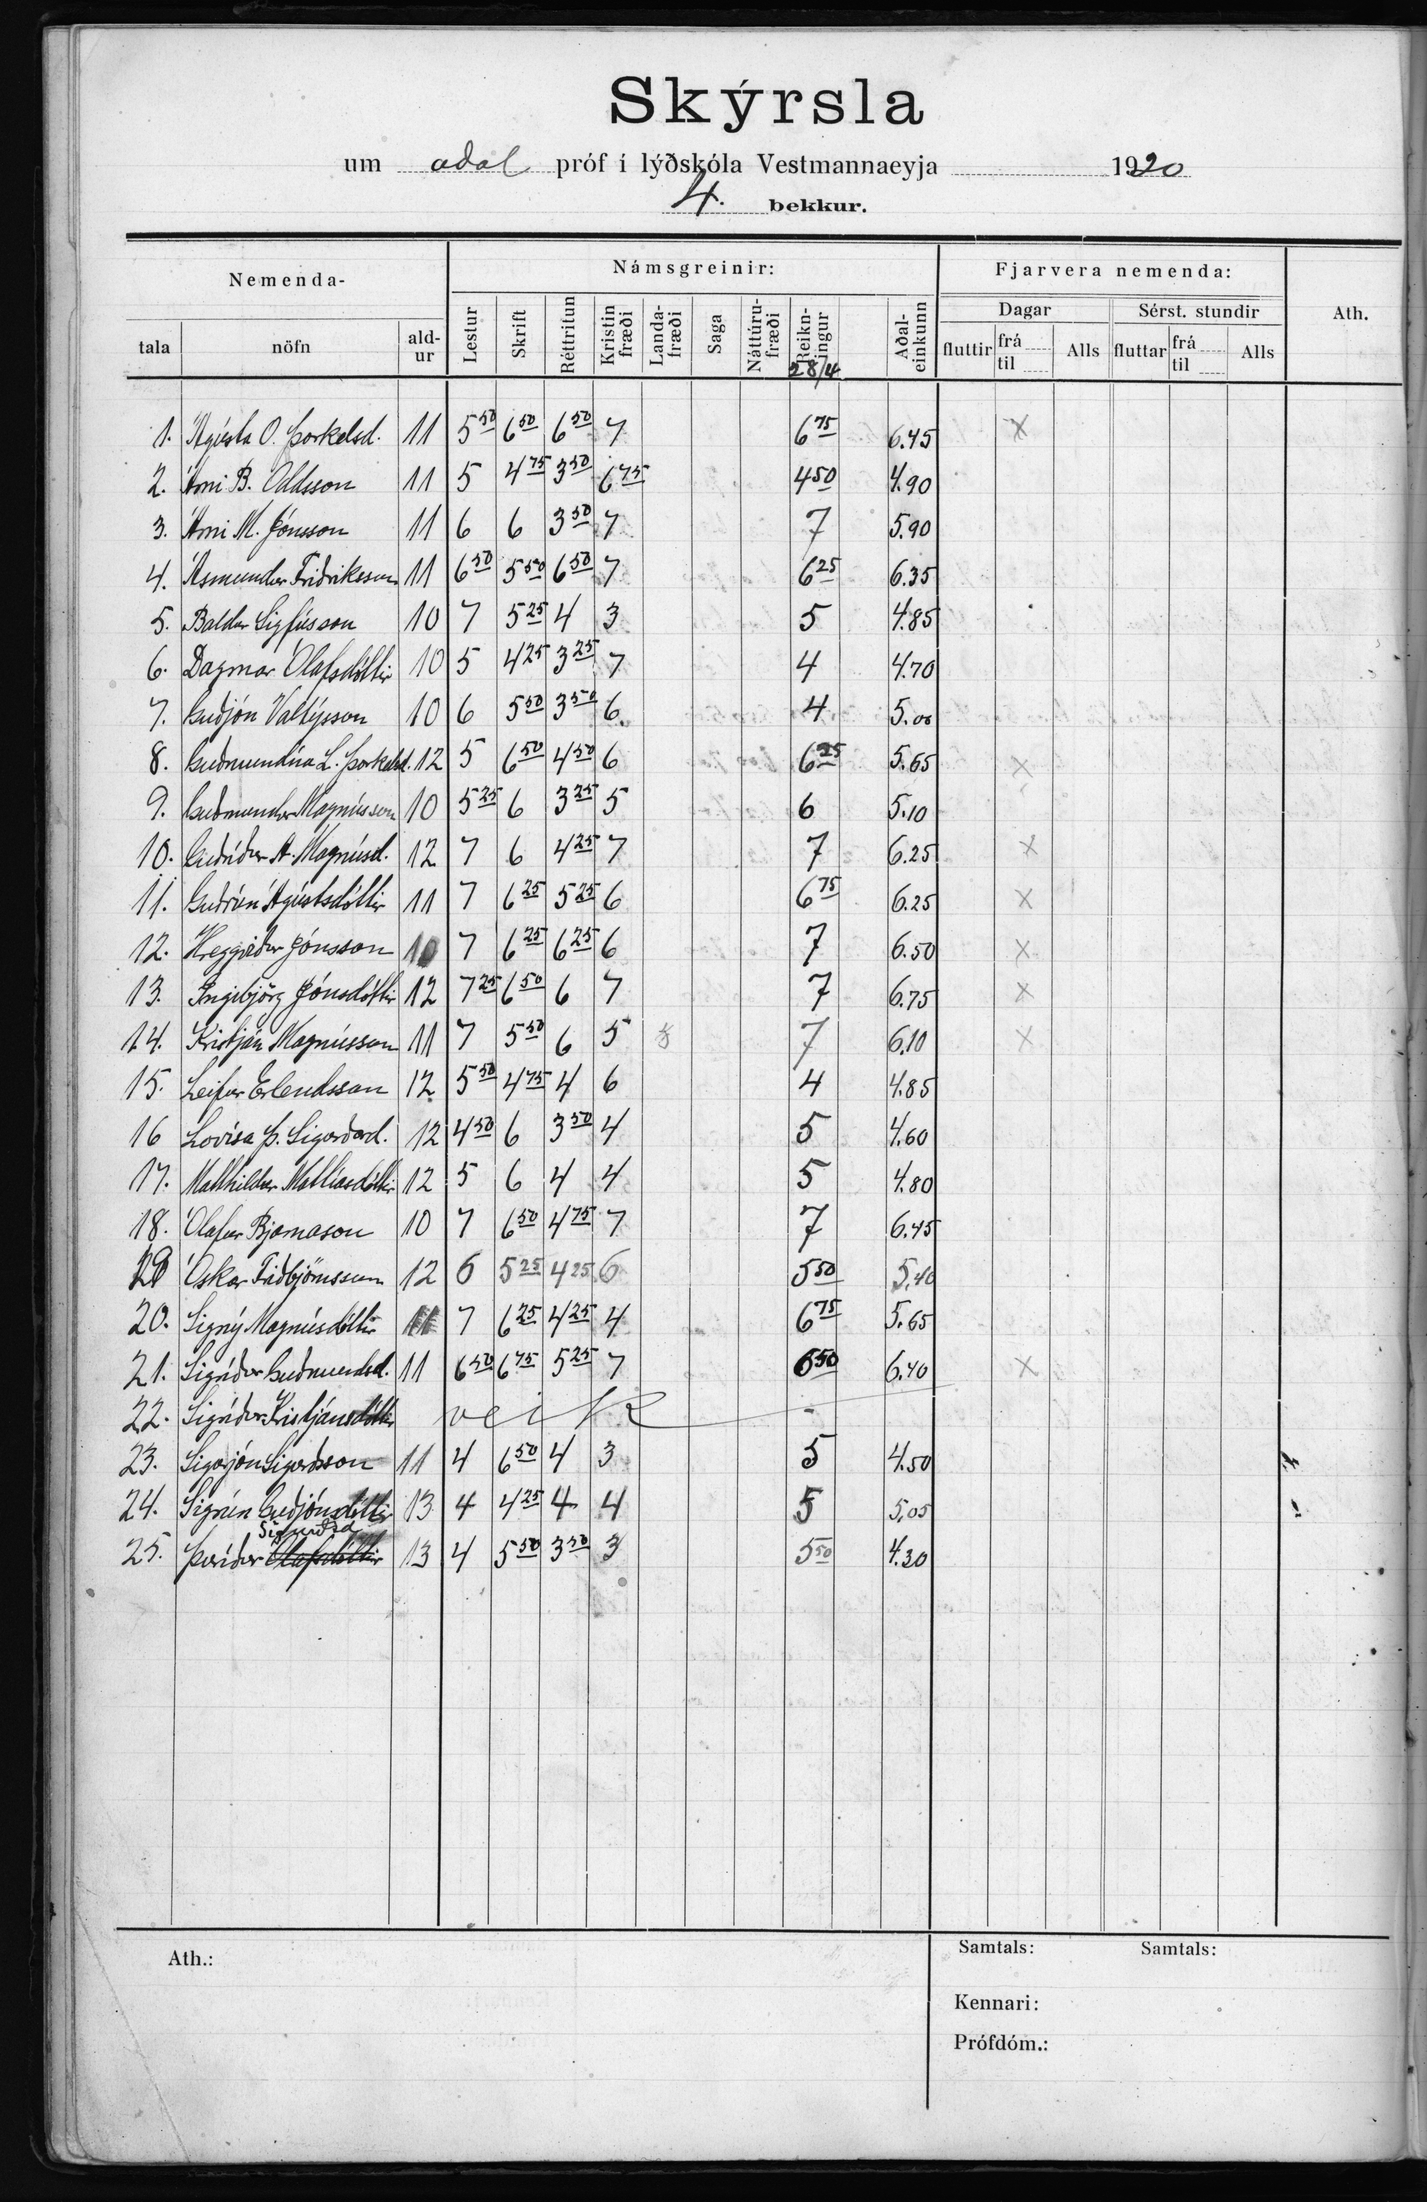 Skýrsla
um aðal próf í lýðskóla Vestmannaeyja 1920
4. bekkur.
Nemenda- Námsgreinir: Fjarvera nemenda: Ath.
Dagar Sérst. stundir
tala nöfn ald-ur Lestur Skrift Réttritun Kristin fræði Landa-fræði Saga Náttúru-fræði Reikn-ingur Aðal-einkunn fluttir frá til Alls fluttar frá til Alls
28/4
1. Ágústa O. Þorkelsd. 11 5 50 6 50 6 50 7 6 75 6.45 x
2. Árni B. Oddsson 11 5 4 75 3 50 6 75 4 50 4.90
3. Árni M. Jónsson 11 6 6 3 50 7 7 5.90
4. Ásmundur Friðriksson 11 6 50 5 50 6 50 7 6 25 6.35
5. Baldur Sigfússon 10 7 5 25 4 3 5 4.85
6. Dagmar Ólafsdóttir 10 5 4 25 3 25 7 4 4.70
7. Guðjón Valtýsson 10 6 5 50 3 50 6 4 5.00
8. Guðmundína L. Þorkelsd. 12 5 6 50 4 50 6 6 25 5.65 x
9. Guðmundur Magnússon 10 5 25 6 3 25 5 6 5.10
10. Guðríður A. Magnúsd. 12 7 6 4 25 7 7 6.25 x
11. Guðrún Ágústsdóttir 11 7 6 25 5 25 6 6 75 6.25 x
12. Hreggviður Jónsson 10 7 6 25 6 25 6 7 6.50 x
13. Ingibjörg Jónsdóttir 12 7 25 6 50 6 7 7 6.75 x
14. Kristján Magnússon 11 7 5 50 6 5 7 6.10 x
15. Leifur Erlendsson 12 5 50 4 75 4 6 4 4.85
16 Lovísa Þ. Sigurðard. 12 4 50 6 3 50 4 5 4.60
17. Matthildur Mattíasdóttir 12 5 6 4 4 5 4.80
18. Ólafur Bjarnason 10 7 6 50 4 75 7 7 6.45
19 Óskar Friðbjörnsson 12 6 5 25 4 25 6 5 50 5.40
20. Signý Magnúsdóttir 11 7 6 25 4 25 4 6 75 5.65
21. Sigríður Guðmundsd. 11 6 50 6 75 5 25 7 6 50 6.40 x
22. Sigríður Kristjánsdóttir veik -
23. Sigurjón Sigurðsson 11 4 6 50 4 3 5 4.50
24. Sigrún Guðjónsdóttir 13 4 4 25 4 4 5 5.05
Sigurðsd
25. Þuríður Ólafsdóttir 13 4 5 50 3 50 3 5 50 4.30
Ath.: Samtals: Samtals:
Kennari:
Prófdóm.: